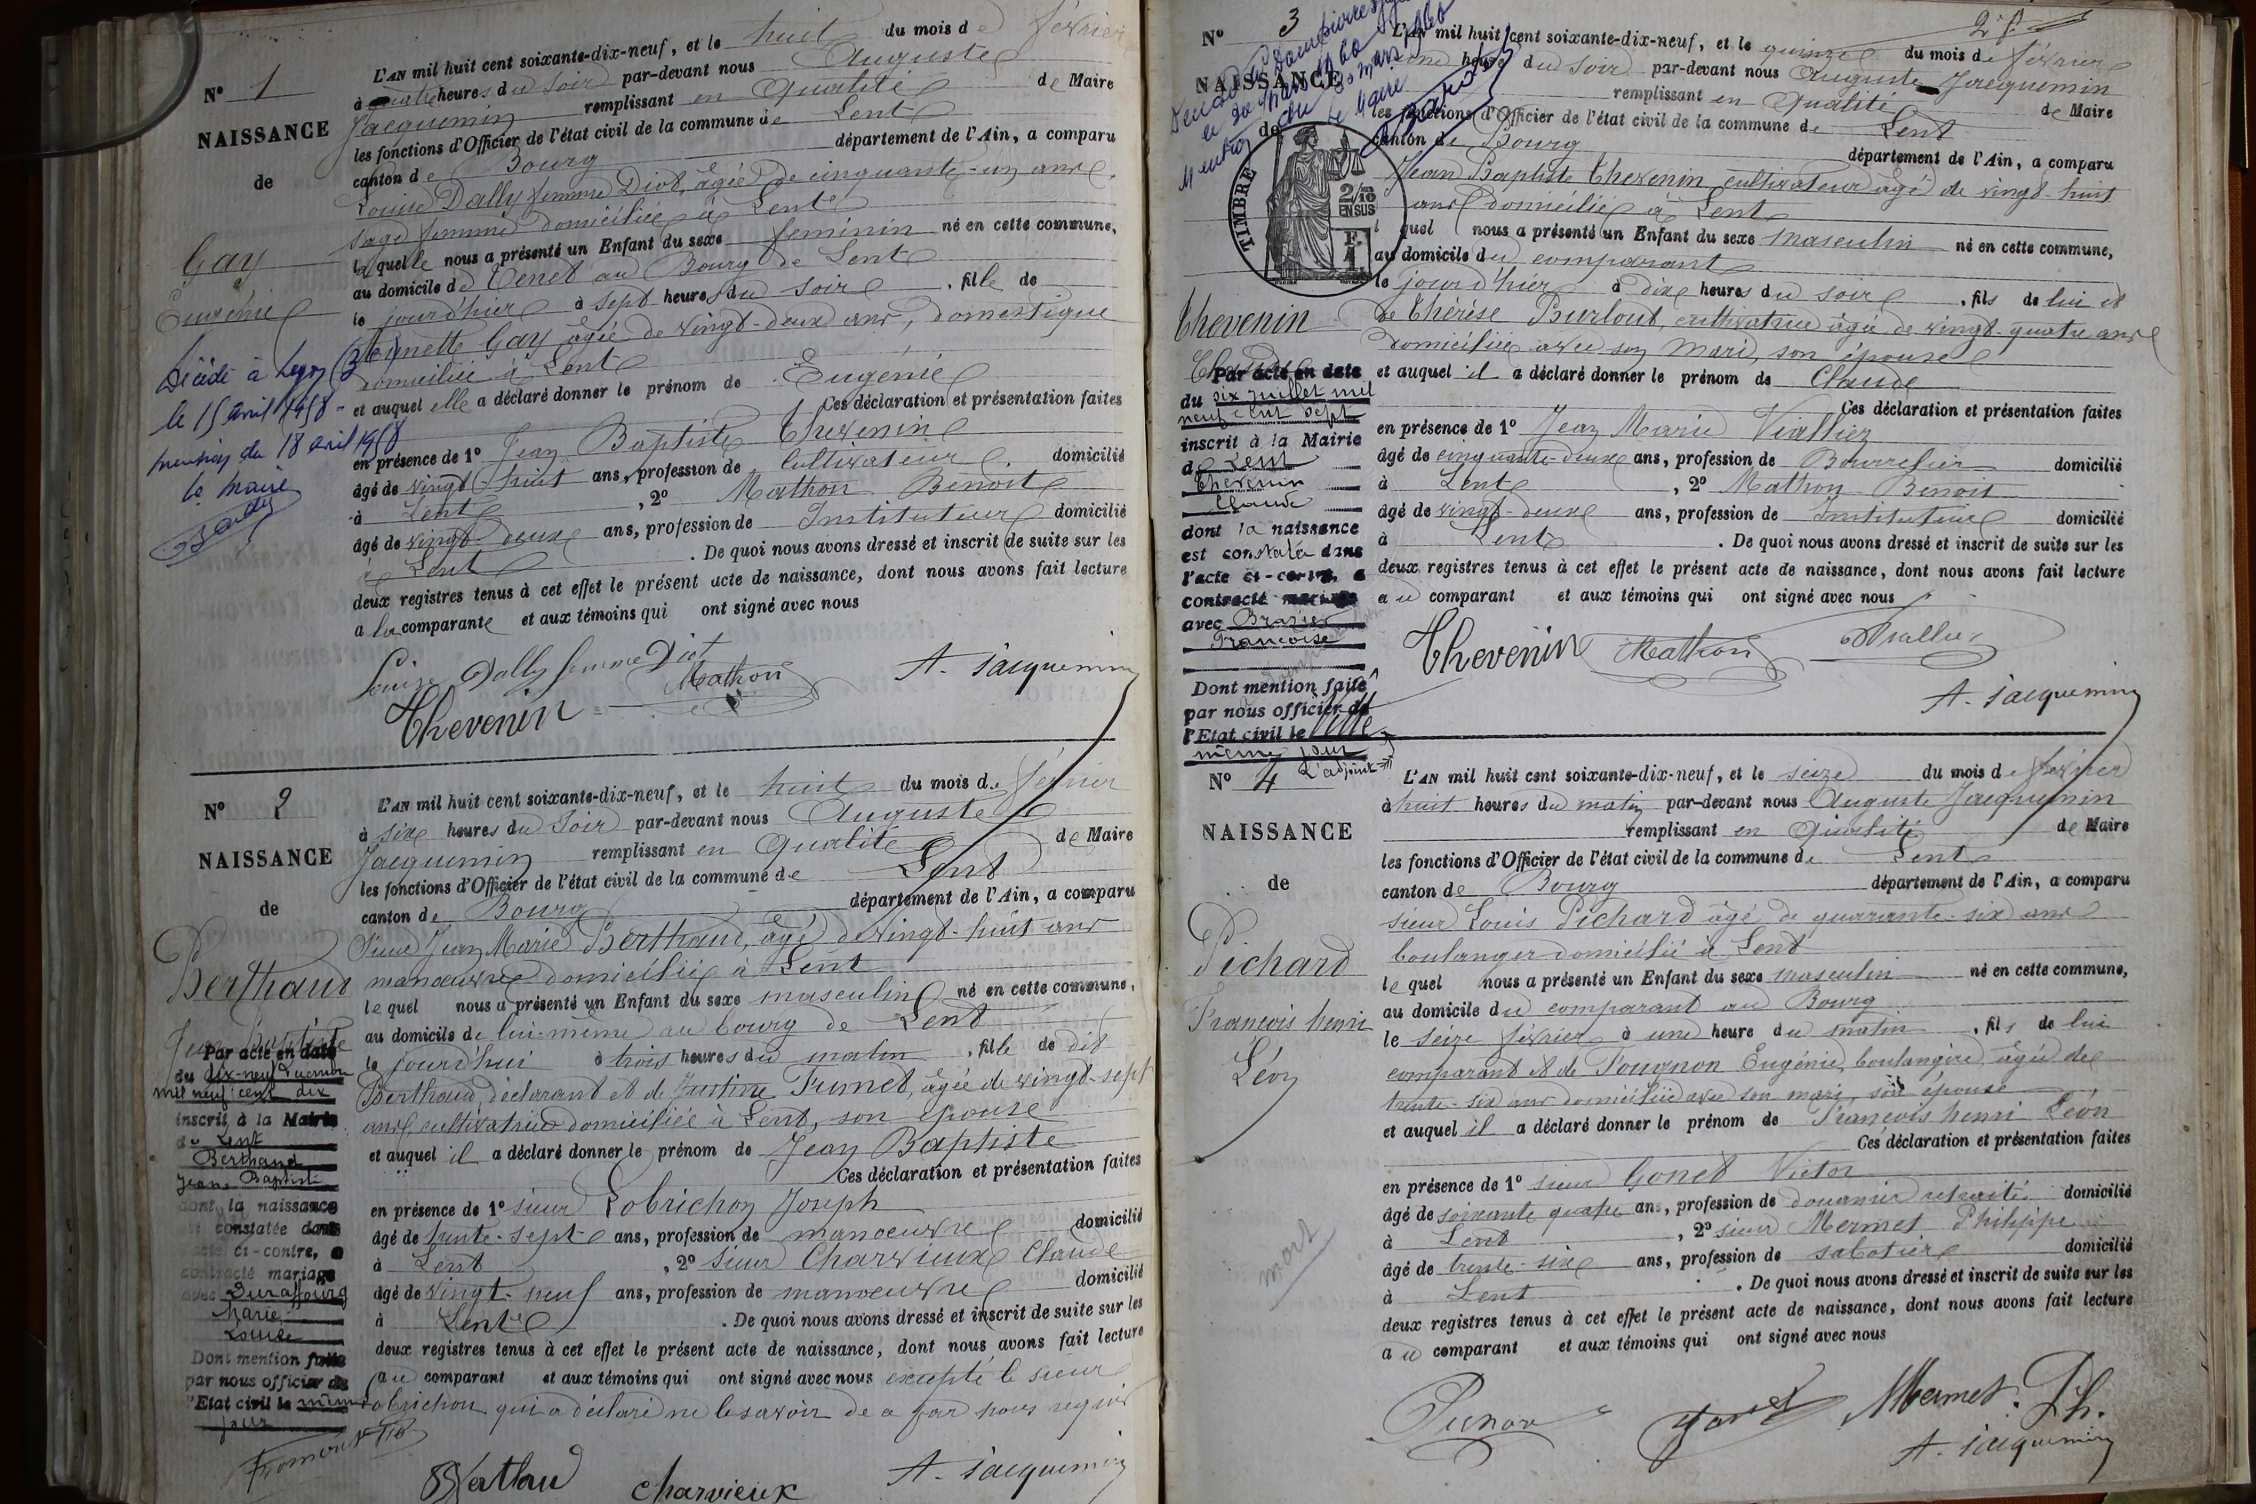 N° 1
NAISSANCE
de
Gay
Eugénie
Décédé à Lyon (3e)
le 15 avril 1958 -
mention du 18 avril 1958
le maire
L'AN mil huit cent soixante-dix-neuf, et le huit du mois de février
à quatre heures du soir par-devant nous Auguste
Jacquemin remplissant en qualité de Maire
les fonctions d'Officier de l'état civil de la commune de Lent
canton de Bourg département de l'Ain, a comparu
Louise Dally femme Diot, âgée de cinquante-un ans
sage femme domiciliée à Lent
laquelle nous a présenté un Enfant du sexe féminin né en cette commune,
au domicile de Cenet au Bourg de Lent
le jourd'hier à sept heures du soir, fille de
Jeannette Gay âgée de vingt-deux ans, domestique
domiciliée à Lent
et auquel elle a déclaré donner le prénom de Eugénie
Ces déclaration et présentation faites
en présence de 1° Jean Baptiste Thevenin
âgé de vingt huit ans, profession de Cultivateur domicilié
à Lent, 2° Mathon Benoit
âgé de vingt deux ans, profession de Instituteur domicilié
à Lent. De quoi nous avons dressé et inscrit de suite sur les
deux registres tenus à cet effet le présent acte de naissance, dont nous avons fait lecture
a la comparante et aux témoins qui ont signé avec nous
Louise Dally femme Diot
Mathon
A. Jacquemin
Thevenin
N° 2
NAISSANCE
de
Berthaud
Jean Baptiste
Par acte en date
du dix-neuf
mil neuf cent dix
inscrit à la Mairie
de Lent
Berthaud
Jean Baptiste
dont la naissance
est constatée dans
l'acte ci-contre, a
contracté mariage
avec Duraffourg
Marie
Louise
Dont mention faite
par nous officier de
l'Etat civil le même
jour
L'AN mil huit cent soixante-dix-neuf, et le huit du mois de février
à six heures du soir par-devant nous Auguste
Jacquemin remplissant en qualité de Maire
les fonctions d'Officier de l'état civil de la commune de Lent
canton de Bourg département de l'Ain, a comparu
Sieur Jean Marie Berthaud, âgé de vingt-huit ans
manoeuvre domicilié à Lent
lequel nous a présenté un Enfant du sexe masculin né en cette commune,
au domicile de lui-même au bourg de Lent
le jourd'hui à trois heures du matin, fils de dit
Berthaud, déclarant et de Justine Frunet, âgée de vingt-sept
ans, cultivatrice domiciliée à Lent, son épouse
et auquel il a déclaré donner le prénom de Jean Baptiste
Ces déclaration et présentation faites
en présence de 1° sieur Lobrichon Joseph
âgé de trente-sept ans, profession de manoeuvre domicilié
à Lent, 2° sieur Charvieux Claude
âgé de vingt-neuf ans, profession de manoeuvre domicilié
à Lent. De quoi nous avons dressé et inscrit de suite sur les
deux registres tenus à cet effet le présent acte de naissance, dont nous avons fait lecture
au comparant et aux témoins qui ont signé avec nous excepté le sieur
Lobrichon qui a déclaré ne le savoir de ce par nous requis
charvieux
A. Jacquemin
N° 3
NAISSANCE
de
TIMBRE
2/10
EN SUS
Thevenin
Claude
Par acte en date
du six juillet mil
neuf cent sept
inscrit à la Mairie
de Lent
Thevenin
Claude
dont la naissance
est constatée dans
l'acte ci-contre, a
contracté mariage
avec Brazier
Françoise
Dont mention faite
par nous officier de
l'Etat civil le
même jour
L'adjoint
2 f.
L'AN mil huit cent soixante-dix-neuf, et le quinze du mois de février
une heure du soir par-devant nous Auguste Jacquemin
remplissant en qualité de Maire
les fonctions d'Officier de l'état civil de la commune de Lent
canton de Bourg département de l'Ain, a comparu
Jean Baptiste Thevenin cultivateur âgé de vingt-huit
ans domicilié à Lent
lequel nous a présenté un Enfant du sexe masculin né en cette commune,
au domicile du comparant
le jourd'hier à dix heures du soir, fils de lui et
de Thérèse Burlout, cultivatrice âgée de vingt-quatre ans
domiciliée avec son mari, son épouse
et auquel il a déclaré donner le prénom de Claude
Ces déclaration et présentation faites
en présence de 1° Jean Marie Viallier
âgé de cinquante-deux ans, profession de Bourrelier domicilié
à Lent, 2° Mathon Benoit
âgé de vingt-deux ans, profession de Instituteur domicilié
à Lent. De quoi nous avons dressé et inscrit de suite sur les
deux registres tenus à cet effet le présent acte de naissance, dont nous avons fait lecture
au comparant et aux témoins qui ont signé avec nous
Thevenin Mathon Viallier
A. Jacquemin
N° 4
NAISSANCE
de
Pichard
François henri
Léon
mort
L'AN mil huit cent soixante-dix-neuf, et le seize du mois de février
à huit heures du matin par-devant nous Auguste Jacquemin
remplissant en qualité de Maire
les fonctions d'Officier de l'état civil de la commune de Lent
canton de Bourg département de l'Ain, a comparu
sieur Louis Pichard âgé de quarante-six ans
boulanger domicilié à Lent
lequel nous a présenté un Enfant du sexe masculin né en cette commune,
au domicile du comparant au Bourg
le seize février à une heure du matin, fils de lui
comparant et de Fournon Eugénie, boulangère, âgée de
trente-six ans domiciliée avec son mari, son épouse
et auquel il a déclaré donner le prénom de François henri Léon
Ces déclaration et présentation faites
en présence de 1° sieur Gonet Victor
âgé de soixante quatre ans, profession de douanier retraité domicilié
à Lent, 2° sieur Mermet Philippe
âgé de trente-six ans, profession de sabotier domicilié
à Lent. De quoi nous avons dressé et inscrit de suite sur les
deux registres tenus à cet effet le présent acte de naissance, dont nous avons fait lecture
au comparant et aux témoins qui ont signé avec nous
Mermet. Ph.
A. Jacquemin